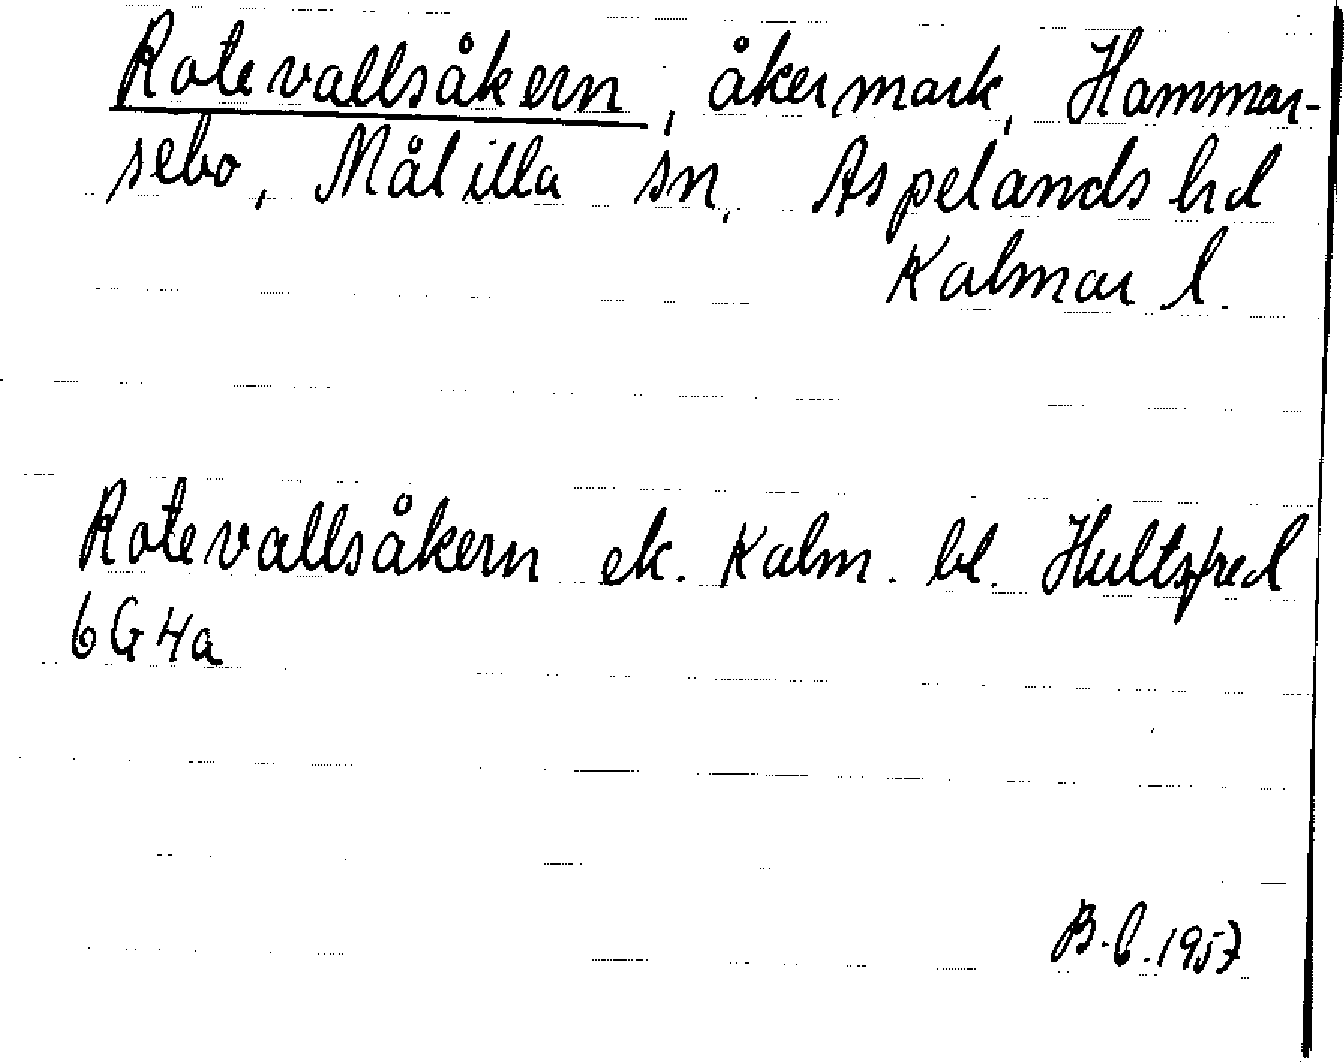 Rotevallsåkern, åkermark, Hammar-
sebo, Målilla sn, Aspelands hd
Kalmar l.
Rotevallsåkern ek. Kalm. bl. Hultsfred
6G4a
B.G.1957